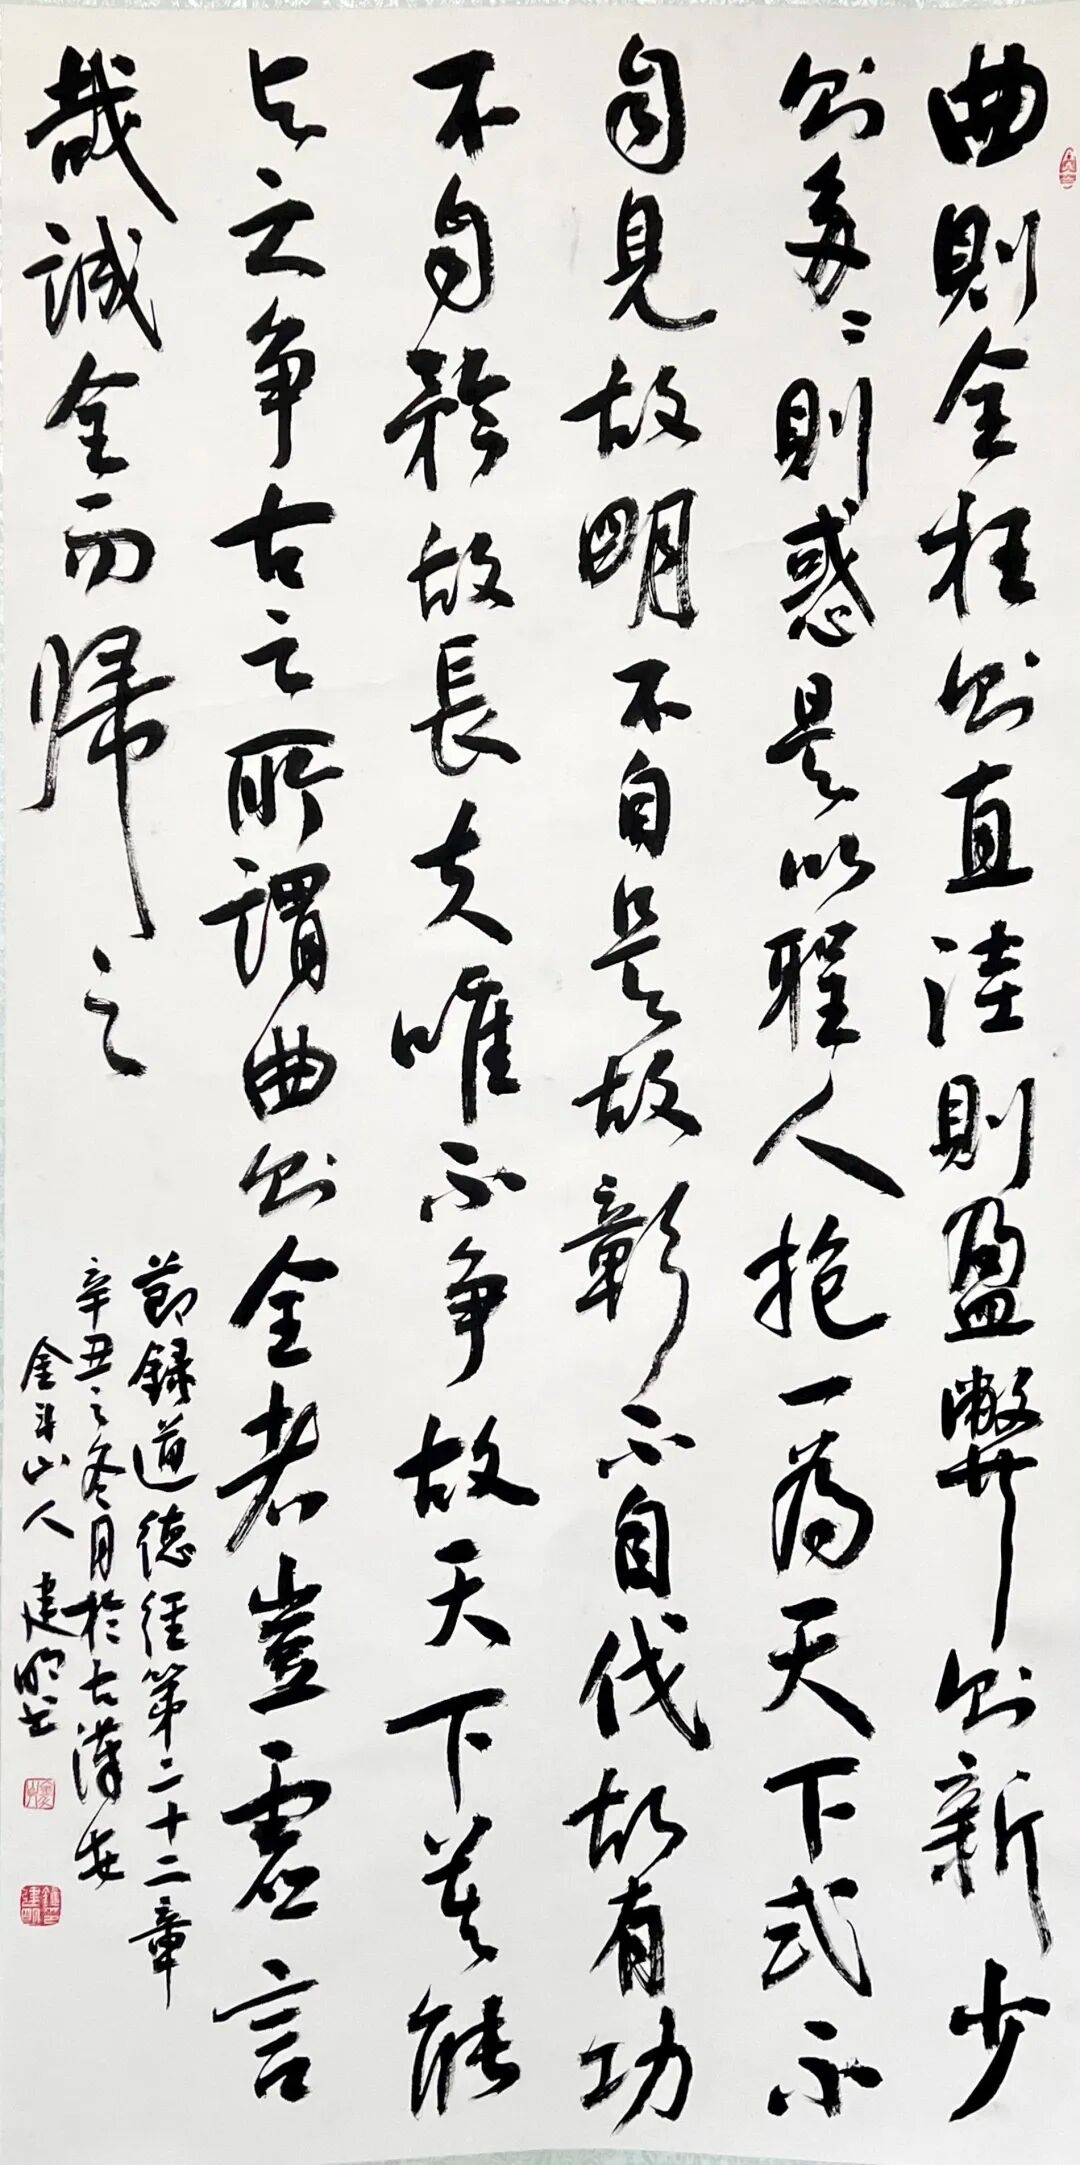 曲則全枉则直洼則盈弊则新少
则多〻則惑是以聖人抱一為天下式不
自見故明不自是故彰不自伐故有功
不自矜故長夫唯不争故天下莫能
与之争古之所謂曲则全者豈虚言
哉誠全而歸之
節録道德経第二十二章
辛丑之冬月於古漢安
金斗山人建明书